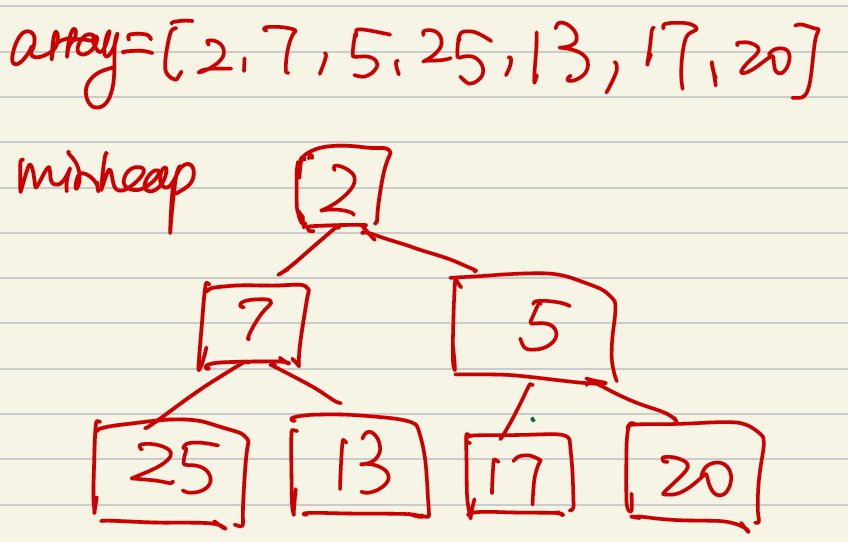 array=[2,7,5,25,13,17,20]
minheap
2
7 5
25 13 17 20